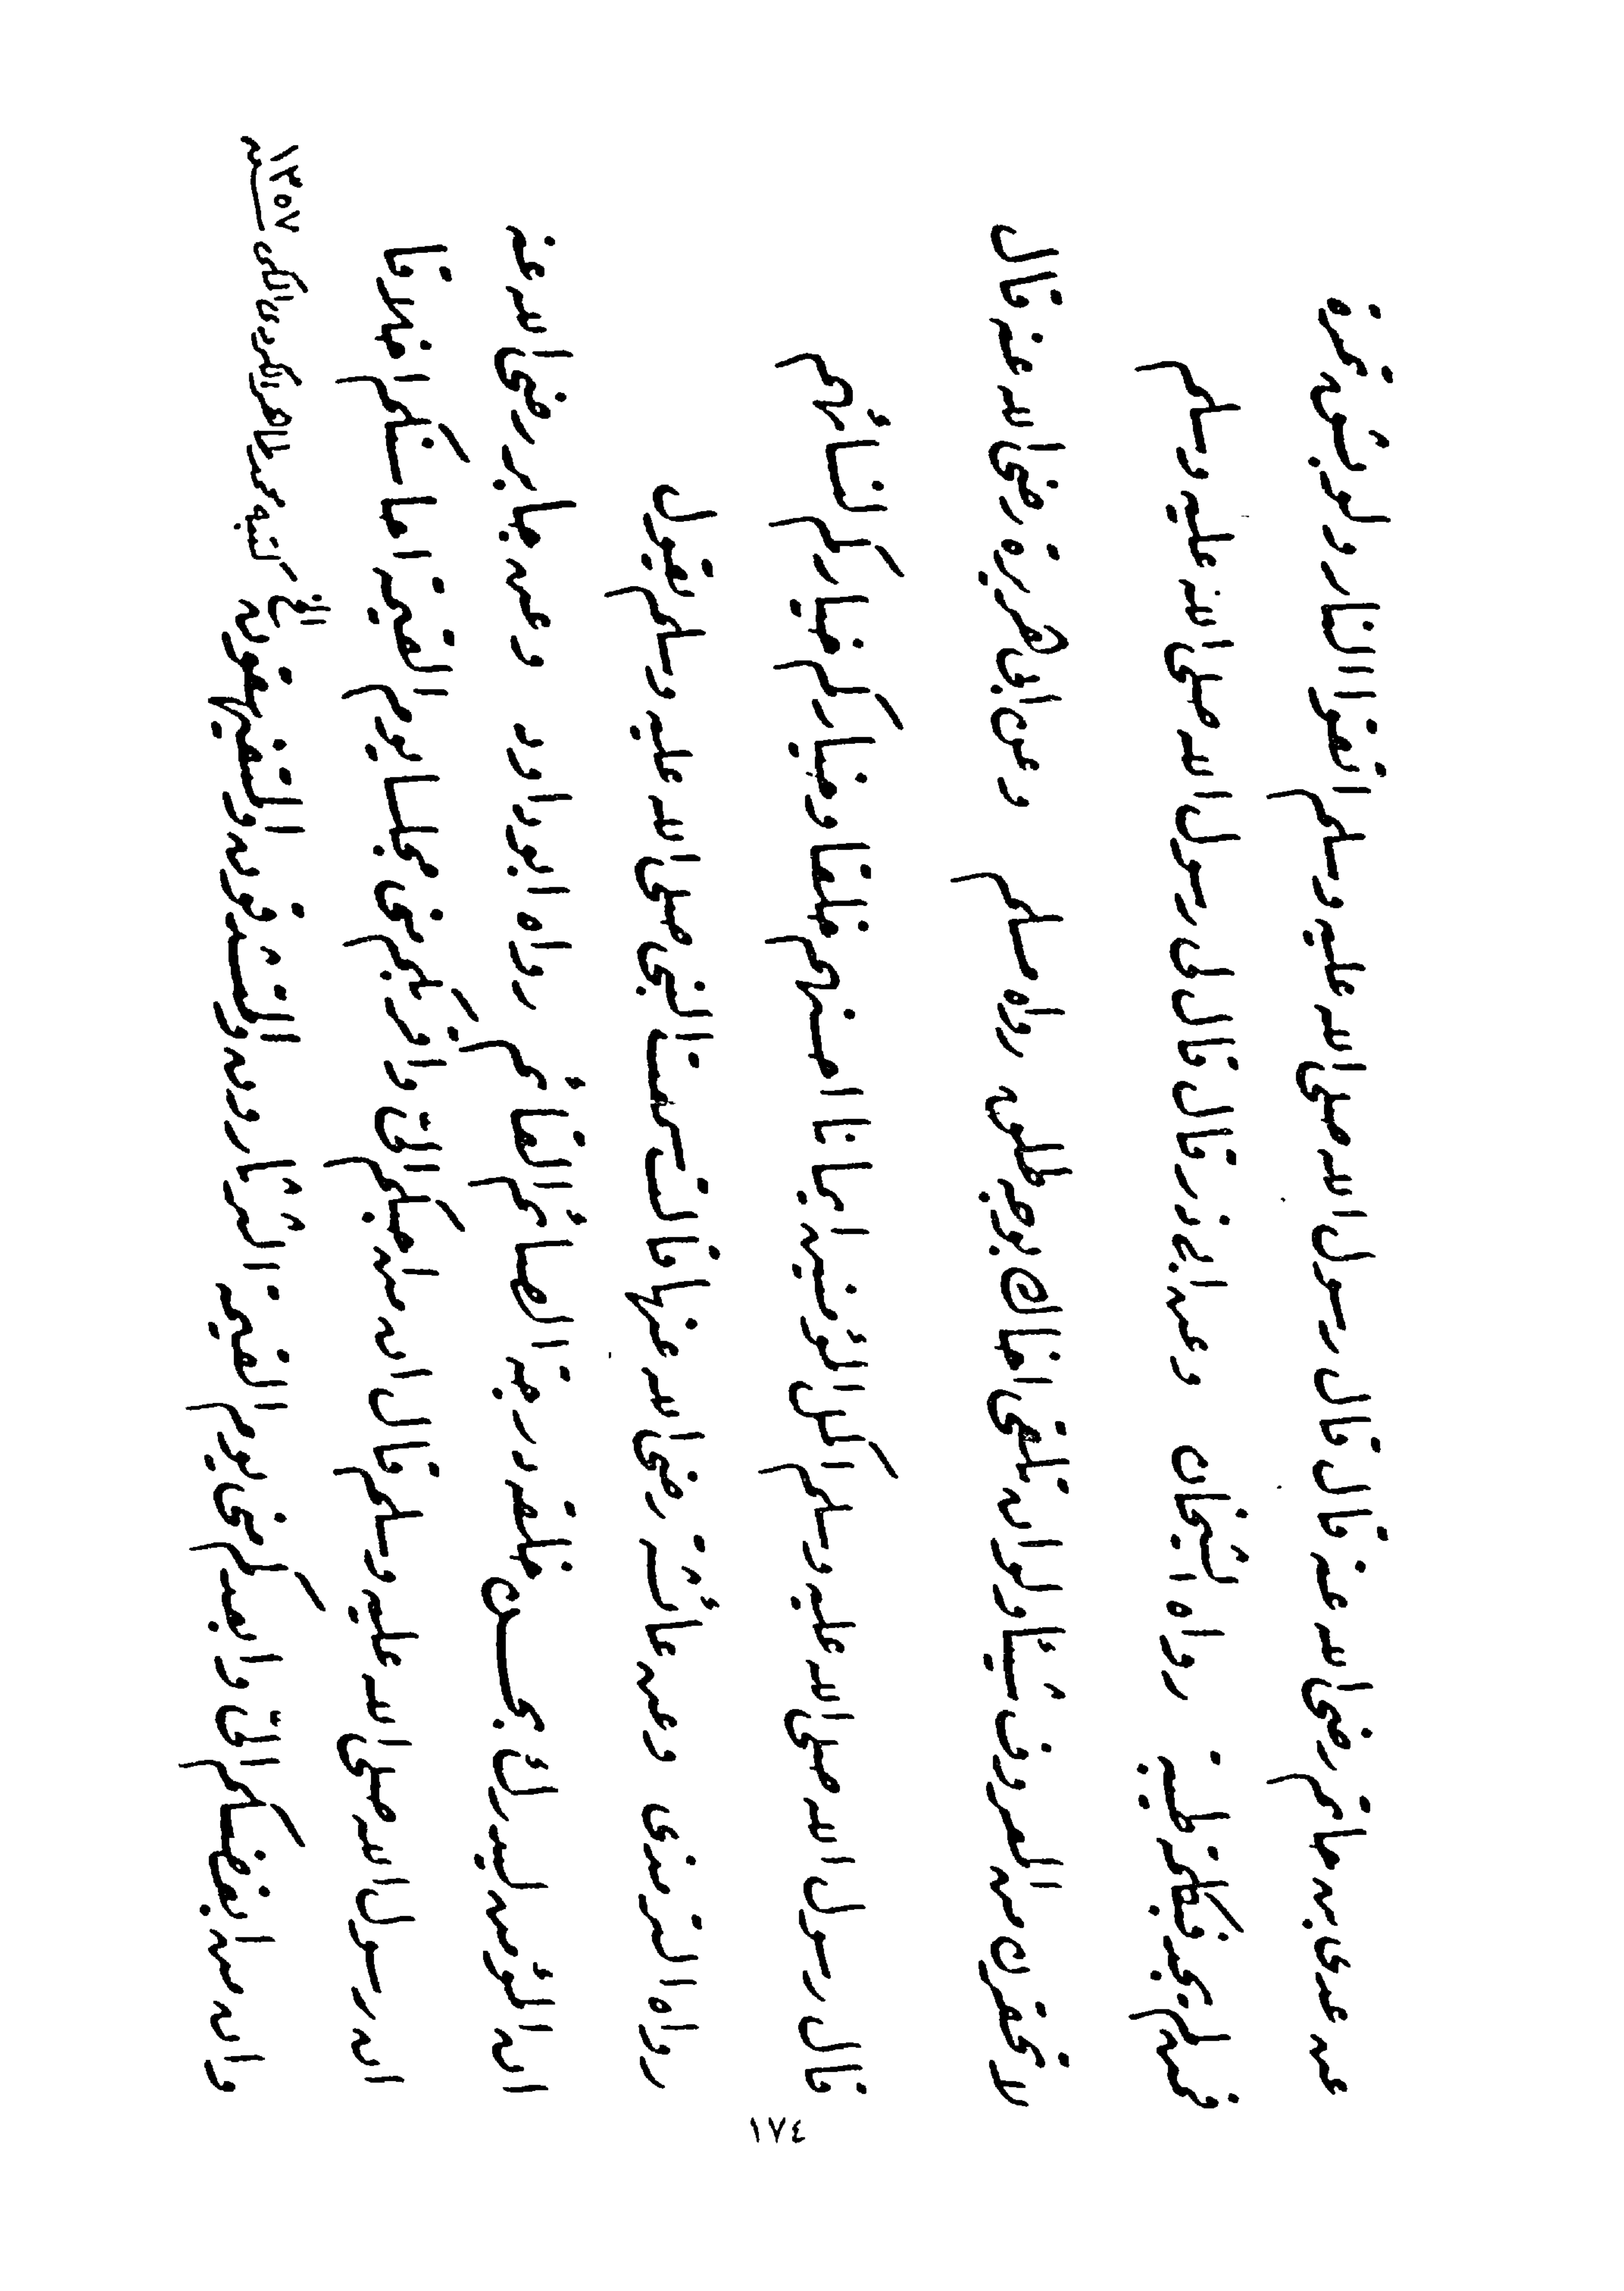 عن عدى بن حاتم رضى الله عنه قال قال رسول الله صلى الله عليه وسلم اتقوا النار ولو بشق تمرة
فمن لم يجد فبكلمة طيبة رواه الشيخان وعن ابى ذر قال قال لى رسول الله صلى الله عليه وسلم
لا تحقرن من المعروف شيئا ولو ان تلقى اخاك بوجه طلق رواه مسلم وعن ابى هريرة رضى الله عنه قال
قال رسول الله صلى الله عليه وسلم اكمل المؤمنين ايمانا احسنهم خلقا وخياركم خياركم لنسائهم
رواه الترمذى وعن عائشة رضى الله عنها قالت سمعت النبى صلى الله عليه وسلم يقول
ان المؤمن ليدرك بحسن خلقه درجة الصائم القائم رواه ابو داود وعن جابر رضى الله عنه
ان رسول الله صلى الله عليه وسلم قال ان من احبكم الى واقربكم منى مجلسا يوم القيمة احاسنكم اخلاقا
وان من ابغضكم الى وابعدكم منى يوم القيمة الثرثارون والمتشدقون والمتفيهقون الخ كتبه محمد طاهر الكردى المكى سنه ١٣٥٧
١٧٤